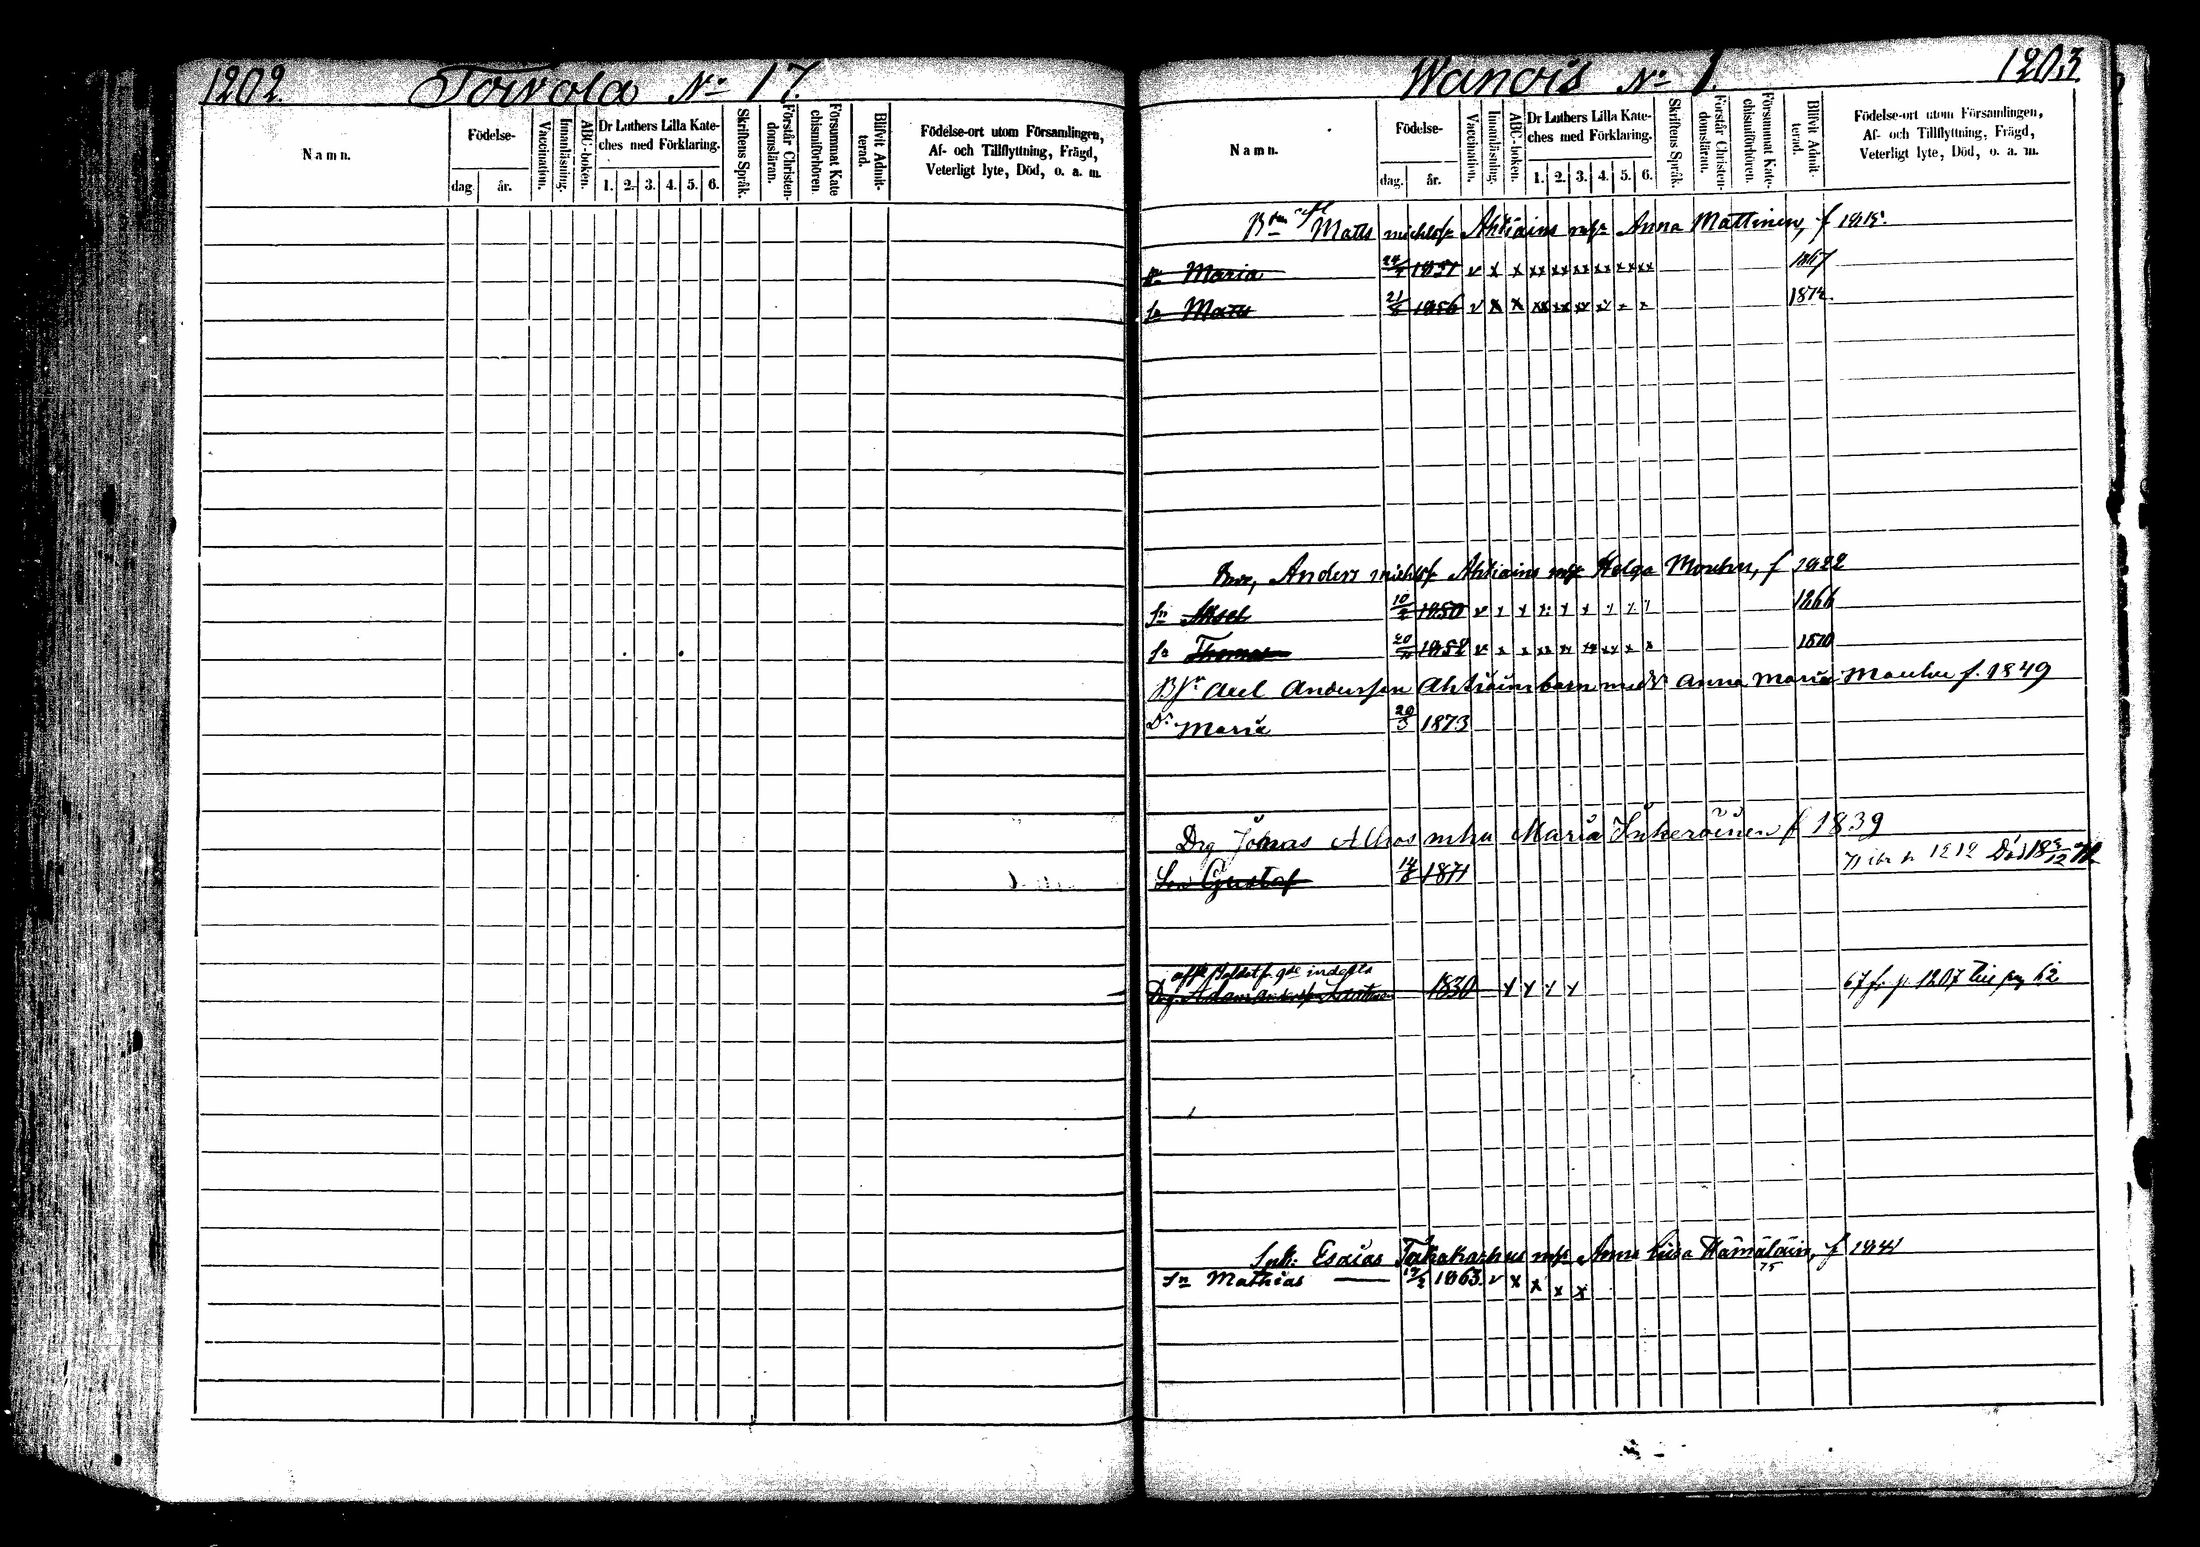 1202. Toivola No 17.
Namn.
Födelse-
dag. år.
Vaccination.
Innanläsning.
ABC-boken.
Dr Luthers Lilla Kate-
ches med Förklaring.
1. 2. 3. 4. 5. 6.
Skriftens Språk.
Förstår Christen-
domsläran.
Försummat Kate
chismiförhören.
Blifvit Admit-
terad.
Födelse-ort utom Församlingen,
Af- och Tillflyttning, Frägd,
Veterligt lyte, Död, o. a. m.
Wanois No 1. 1203.
Namn.
Födelse-
dag. år.
Vaccination.
Innanläsning.
ABC-boken.
Dr Luthers Lilla Kate-
ches med Förklaring.
1. 2. 3. 4. 5. 6.
Skriftens Språk.
Förstår Christen-
domsläran.
Försummat Kate-
chismiförhören.
Blifvit Admit-
terad.
Födelse-ort utom Församlingen,
Af- och Tillflyttning, Frägd,
Veterligt lyte, Död, o. a. m.
Matts Ahtiains Anna Mattinen, f 1815.
Maria 1851 v x x xx xx xx xx xx xx 1867
Sn Matts 1856 v x x xx xx xx x x x 1872.
Anders Ahtiains Helga Mouhu, f 1822
Sn Aksel 10/2 1850 v x x x x x x x x 1866
Sn Thomas 1852 v x x xx xx xx xx x x 1870
Axel Andersson Ahtiains barn med Anna Maria Mouhu f. 1849
Dr Maria 20/3 1873
Drg Jonas Ahos mhu Maria Inkeroinen f 1839
Son Gustaf 14/8 1871 Död 18
Drg. Adam Andersson 1830 x x x x 67 fr. p. 1207 till pag 62
Esaias Takakarhus Anna Lisa Hämäläin, f 1841
75
Sn Mathias 1863. v x x x x